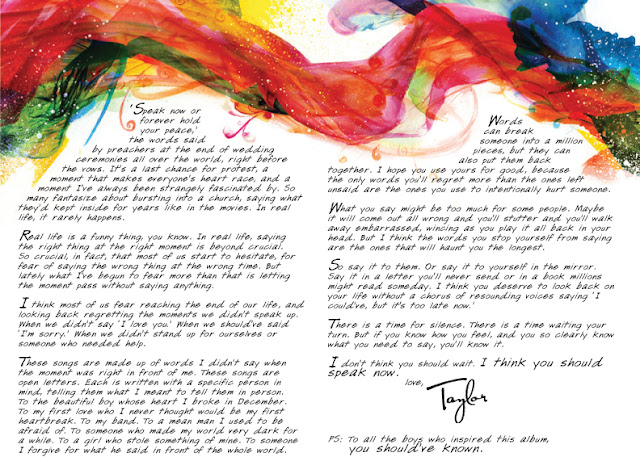 'Speak now or
forever hold
your peace,'
the words said
by preachers at the end of wedding
ceremonies all over the world, right before
the vows. It's a last chance for protest, a
moment that makes everyone's heart race, and a
moment I've always been strangely fascinated by. So
many fantasize about bursting into a church, saying what
they'd kept inside for years like in the movies. In real
life, it rarely happens.
Real life is a funny thing, you know. In real life, saying
the right thing at the right moment is beyond crucial.
So crucial, in fact, that most of us start to hesitate, for
fear of saying the wrong thing at the wrong time. But
lately what I've begun to fear more than that is letting
the moment pass without saying anything.
I think most of us fear reaching the end of our life, and
looking back regretting the moments we didn't speak up.
When we didn't say 'I love you.' When we should've said
'I'm sorry.' When we didn't stand up for ourselves or
someone who needed help.
These songs are made up of words I didn't say when
the moment was right in front of me. These songs are
open letters. Each is written with a specific person in
mind, telling them what I meant to tell them in person.
To the beautiful boy whose heart I broke in December.
To my first love who I never thought would be my first
heartbreak. To my band. To a mean man I used to be
afraid of. To someone who made my world very dark for
a while. To a girl who stole something of mine. To someone
I forgive for what he said in front of the whole world.
Words
can break
someone into a million
pieces, but they can
also put them back
together. I hope you use yours for good, because
the only words you'll regret more than the ones left
unsaid are the ones you use to intentionally hurt someone.
What you say might be too much for some people. Maybe
it will come out all wrong and you'll stutter and you'll walk
away embarrassed, wincing as you play it all back in your
head. But I think the words you stop yourself from saying
are the ones that will haunt you the longest.
So say it to them. Or say it to yourself in the mirror.
Say it in a letter you'll never send or in a book millions
might read someday. I think you deserve to look back on
your life without a chorus of resounding voices saying 'I
could've, but it's too late now.'
There is a time for silence. There is a time waiting your
turn. But if you know how you feel, and you so clearly know
what you need to say, you'll know it.
I don't think you should wait. I think you should
speak now.
love,
Taylor
PS: To all the boys who inspired this album,
you should've known.